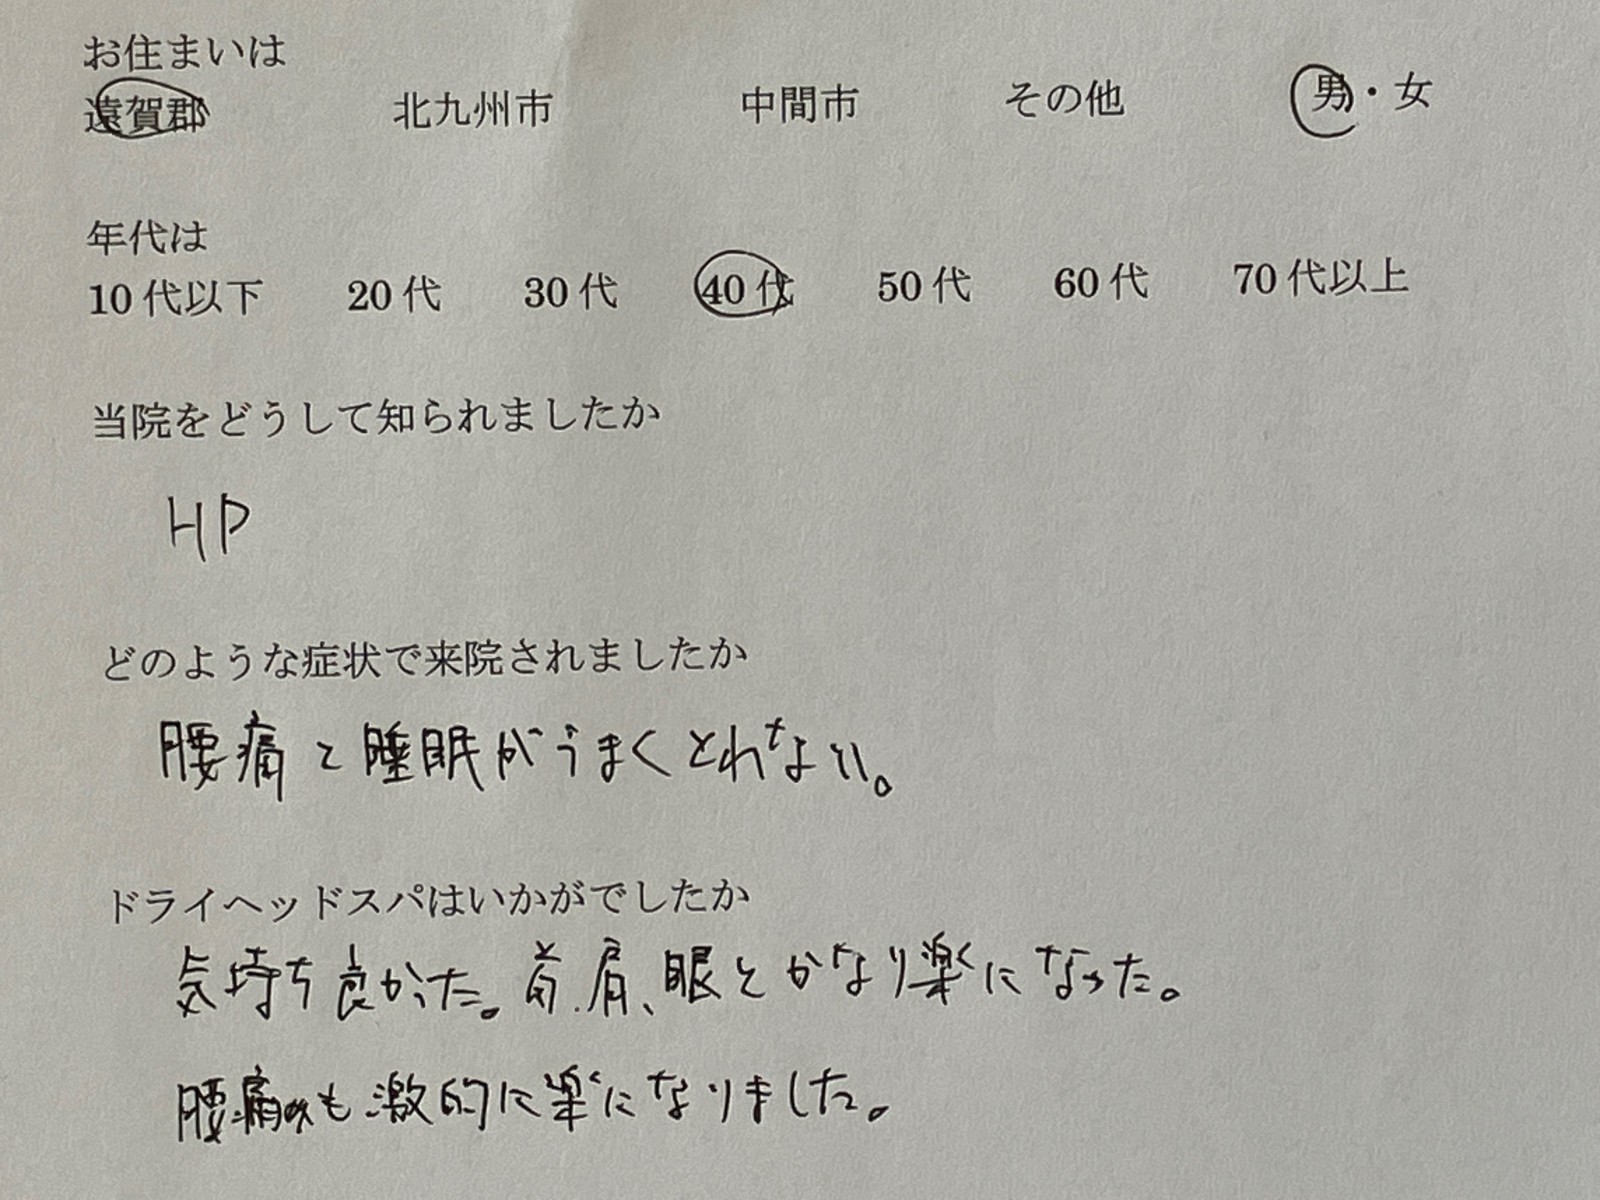 お住まいは
遠賀郡 北九州市 中間市 その他 男・女
年代は
10代以下 20代 30代 40代 50代 60代 70代以上
当院をどうして知られましたか
HP
どのような症状で来院されましたか
腰痛と睡眠がうまくとれない。
ドライヘッドスパはいかがでしたか
気持ち良かった。首、肩、眼とかなり楽になった。
腰痛も激的に楽になりました。